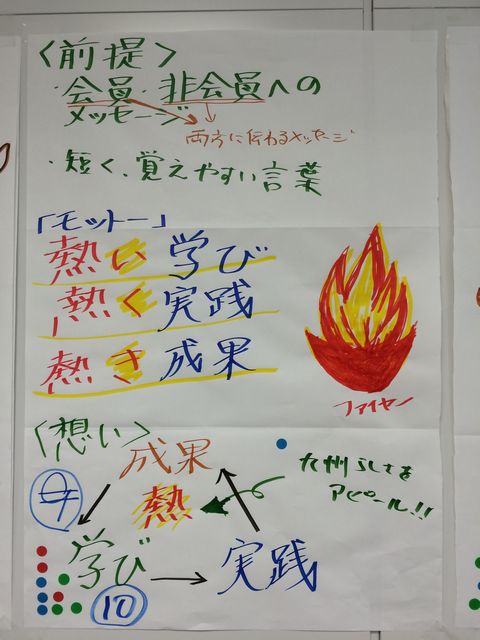 〈前提〉
・会員・非会員への
メッセージ
両方に伝わるメッセージ
・短く、覚えやすい言葉
「モットー」
熱い学び
熱く実践
熱き成果
ファイヤー
〈想い〉
成果
九州らしさを
アピール!!
熱
学び
実践
10